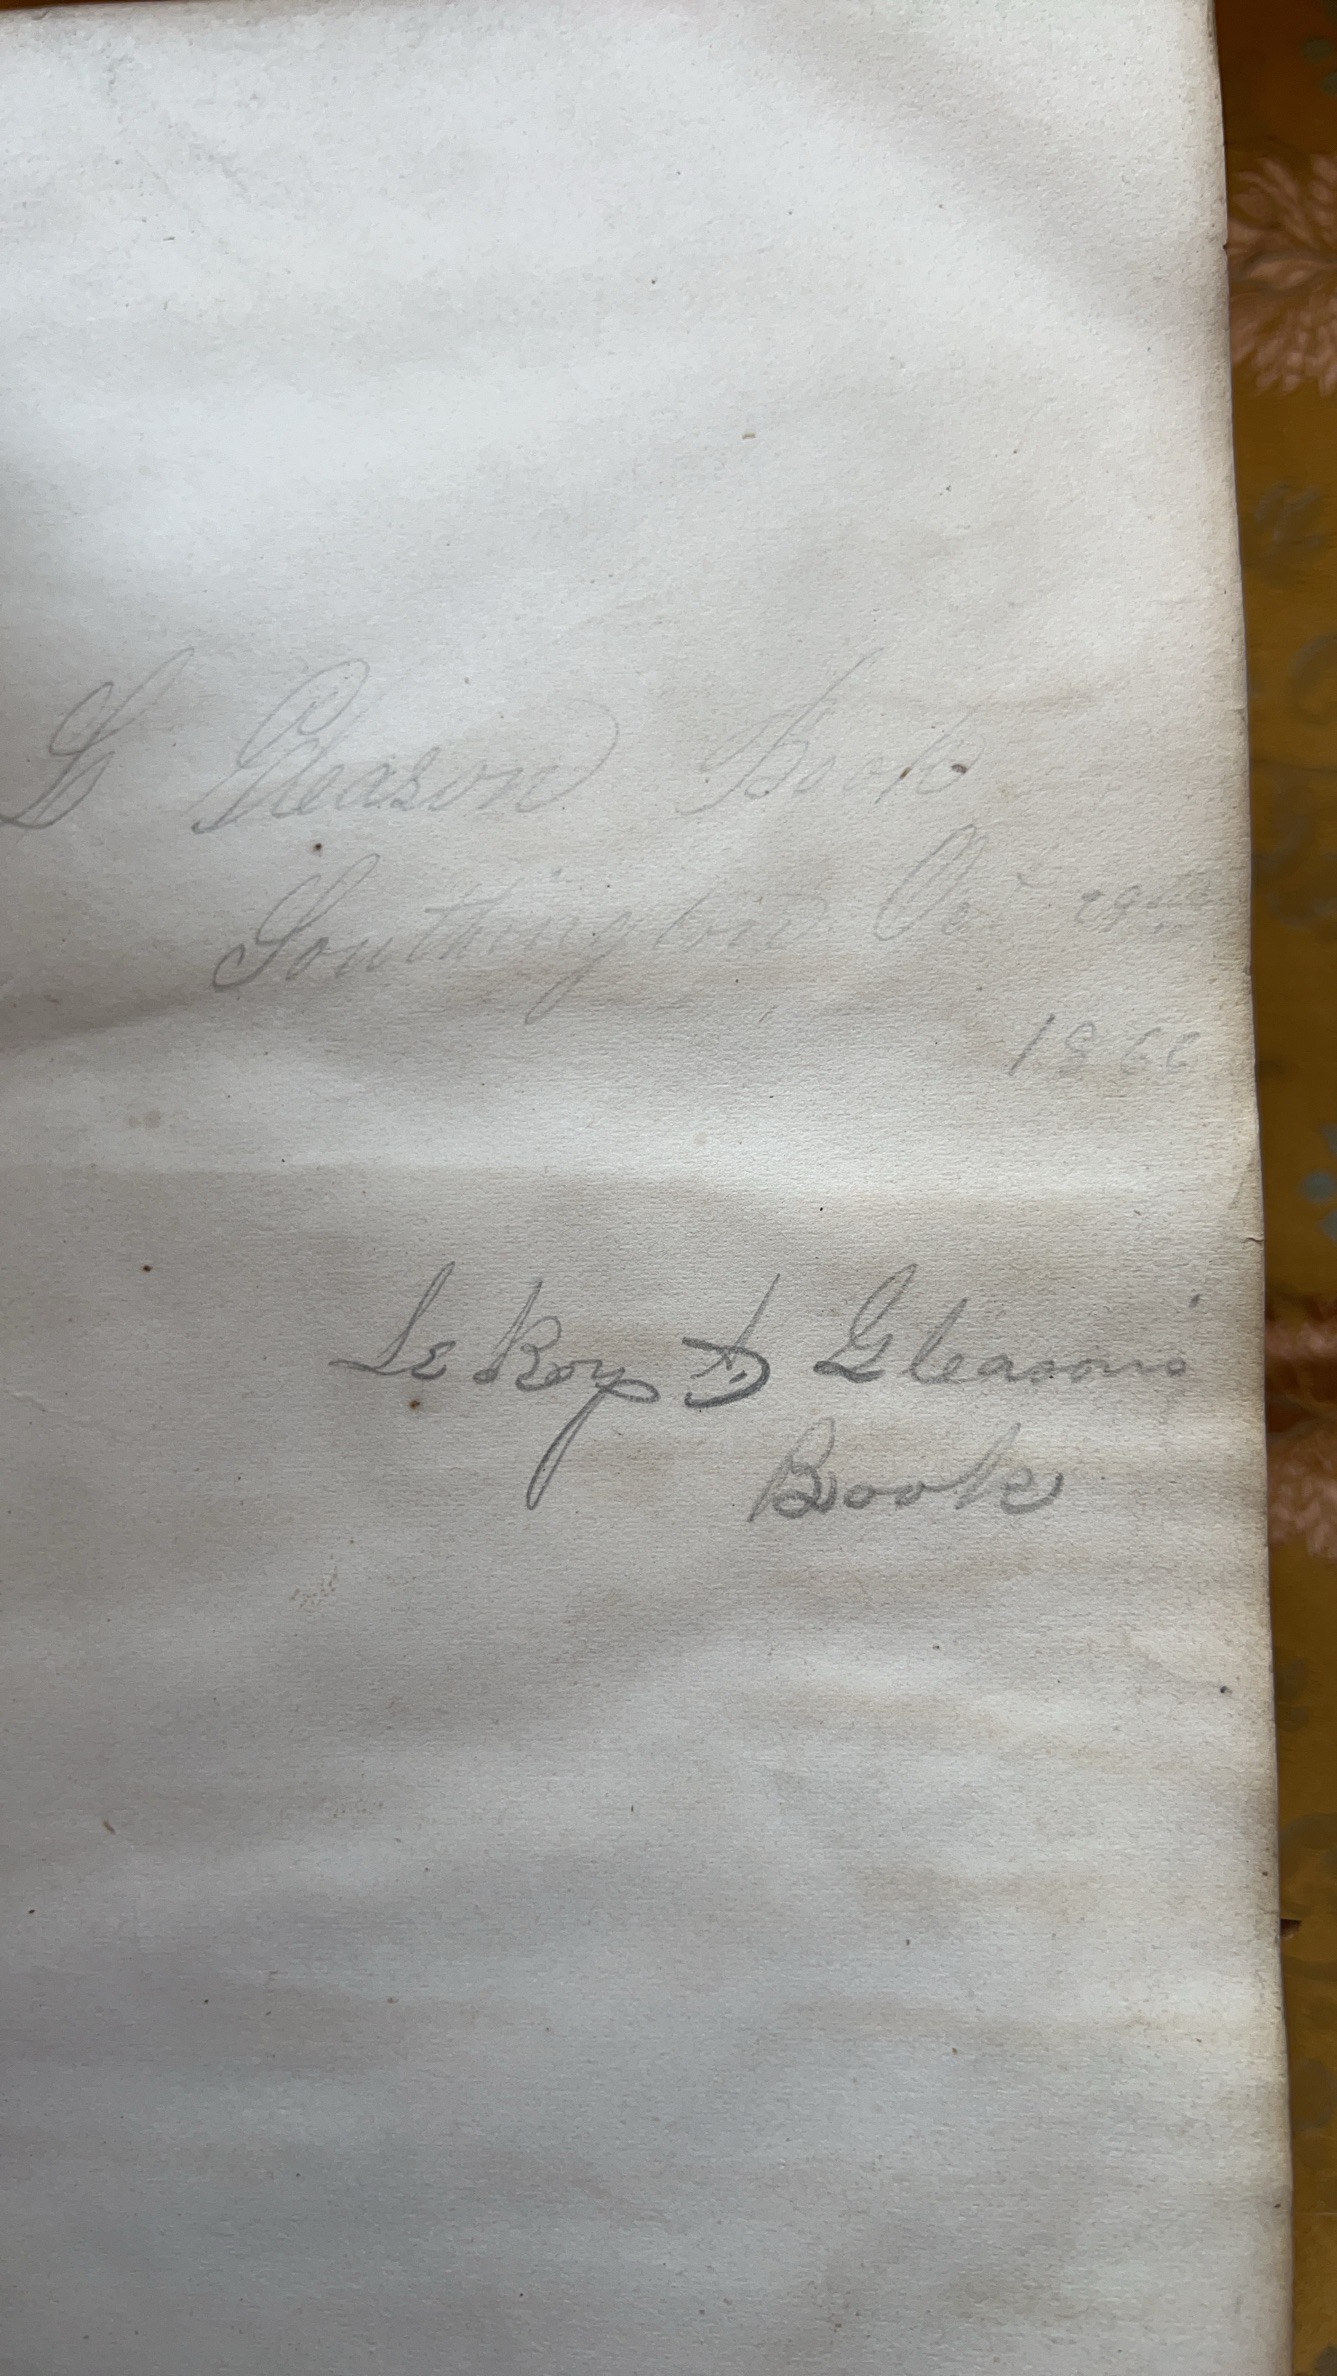 L Gleason Book
Southington Oct 29th
1866
LeRoy A. Gleason's
Book